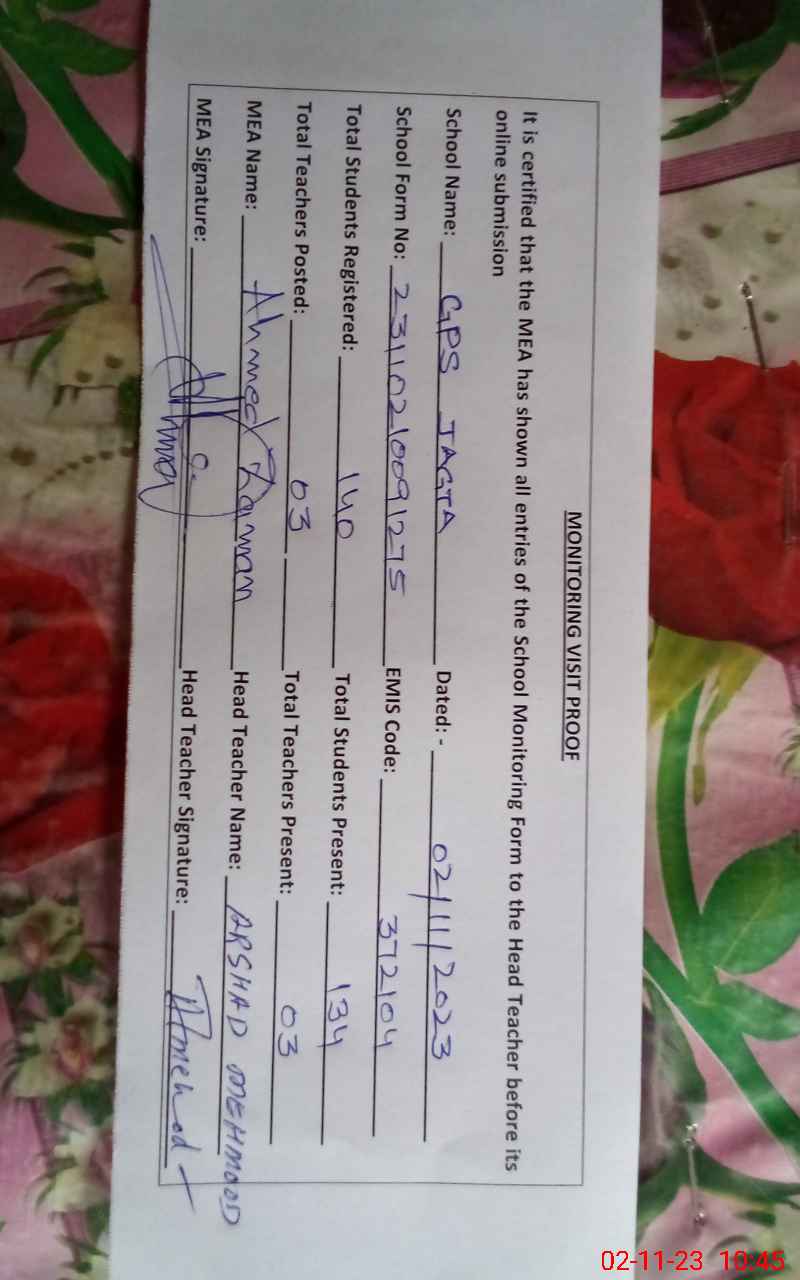 MONITORING VISIT PROOF
It is certified that the MEA has shown all entries of the School Monitoring Form to the Head Teacher before its
online submission
School Name: GPS JAGTA Dated: - 02/11/2023
School Form No: 23110210091275 EMIS Code: 372104
Total Students Registered: 140 Total Students Present: 134
Total Teachers Posted: 03 Total Teachers Present: 03
MEA Name: Ahmed Zaman Head Teacher Name: ARSHAD MEHMOOD
MEA Signature: Head Teacher Signature:
02-11-23 10:45